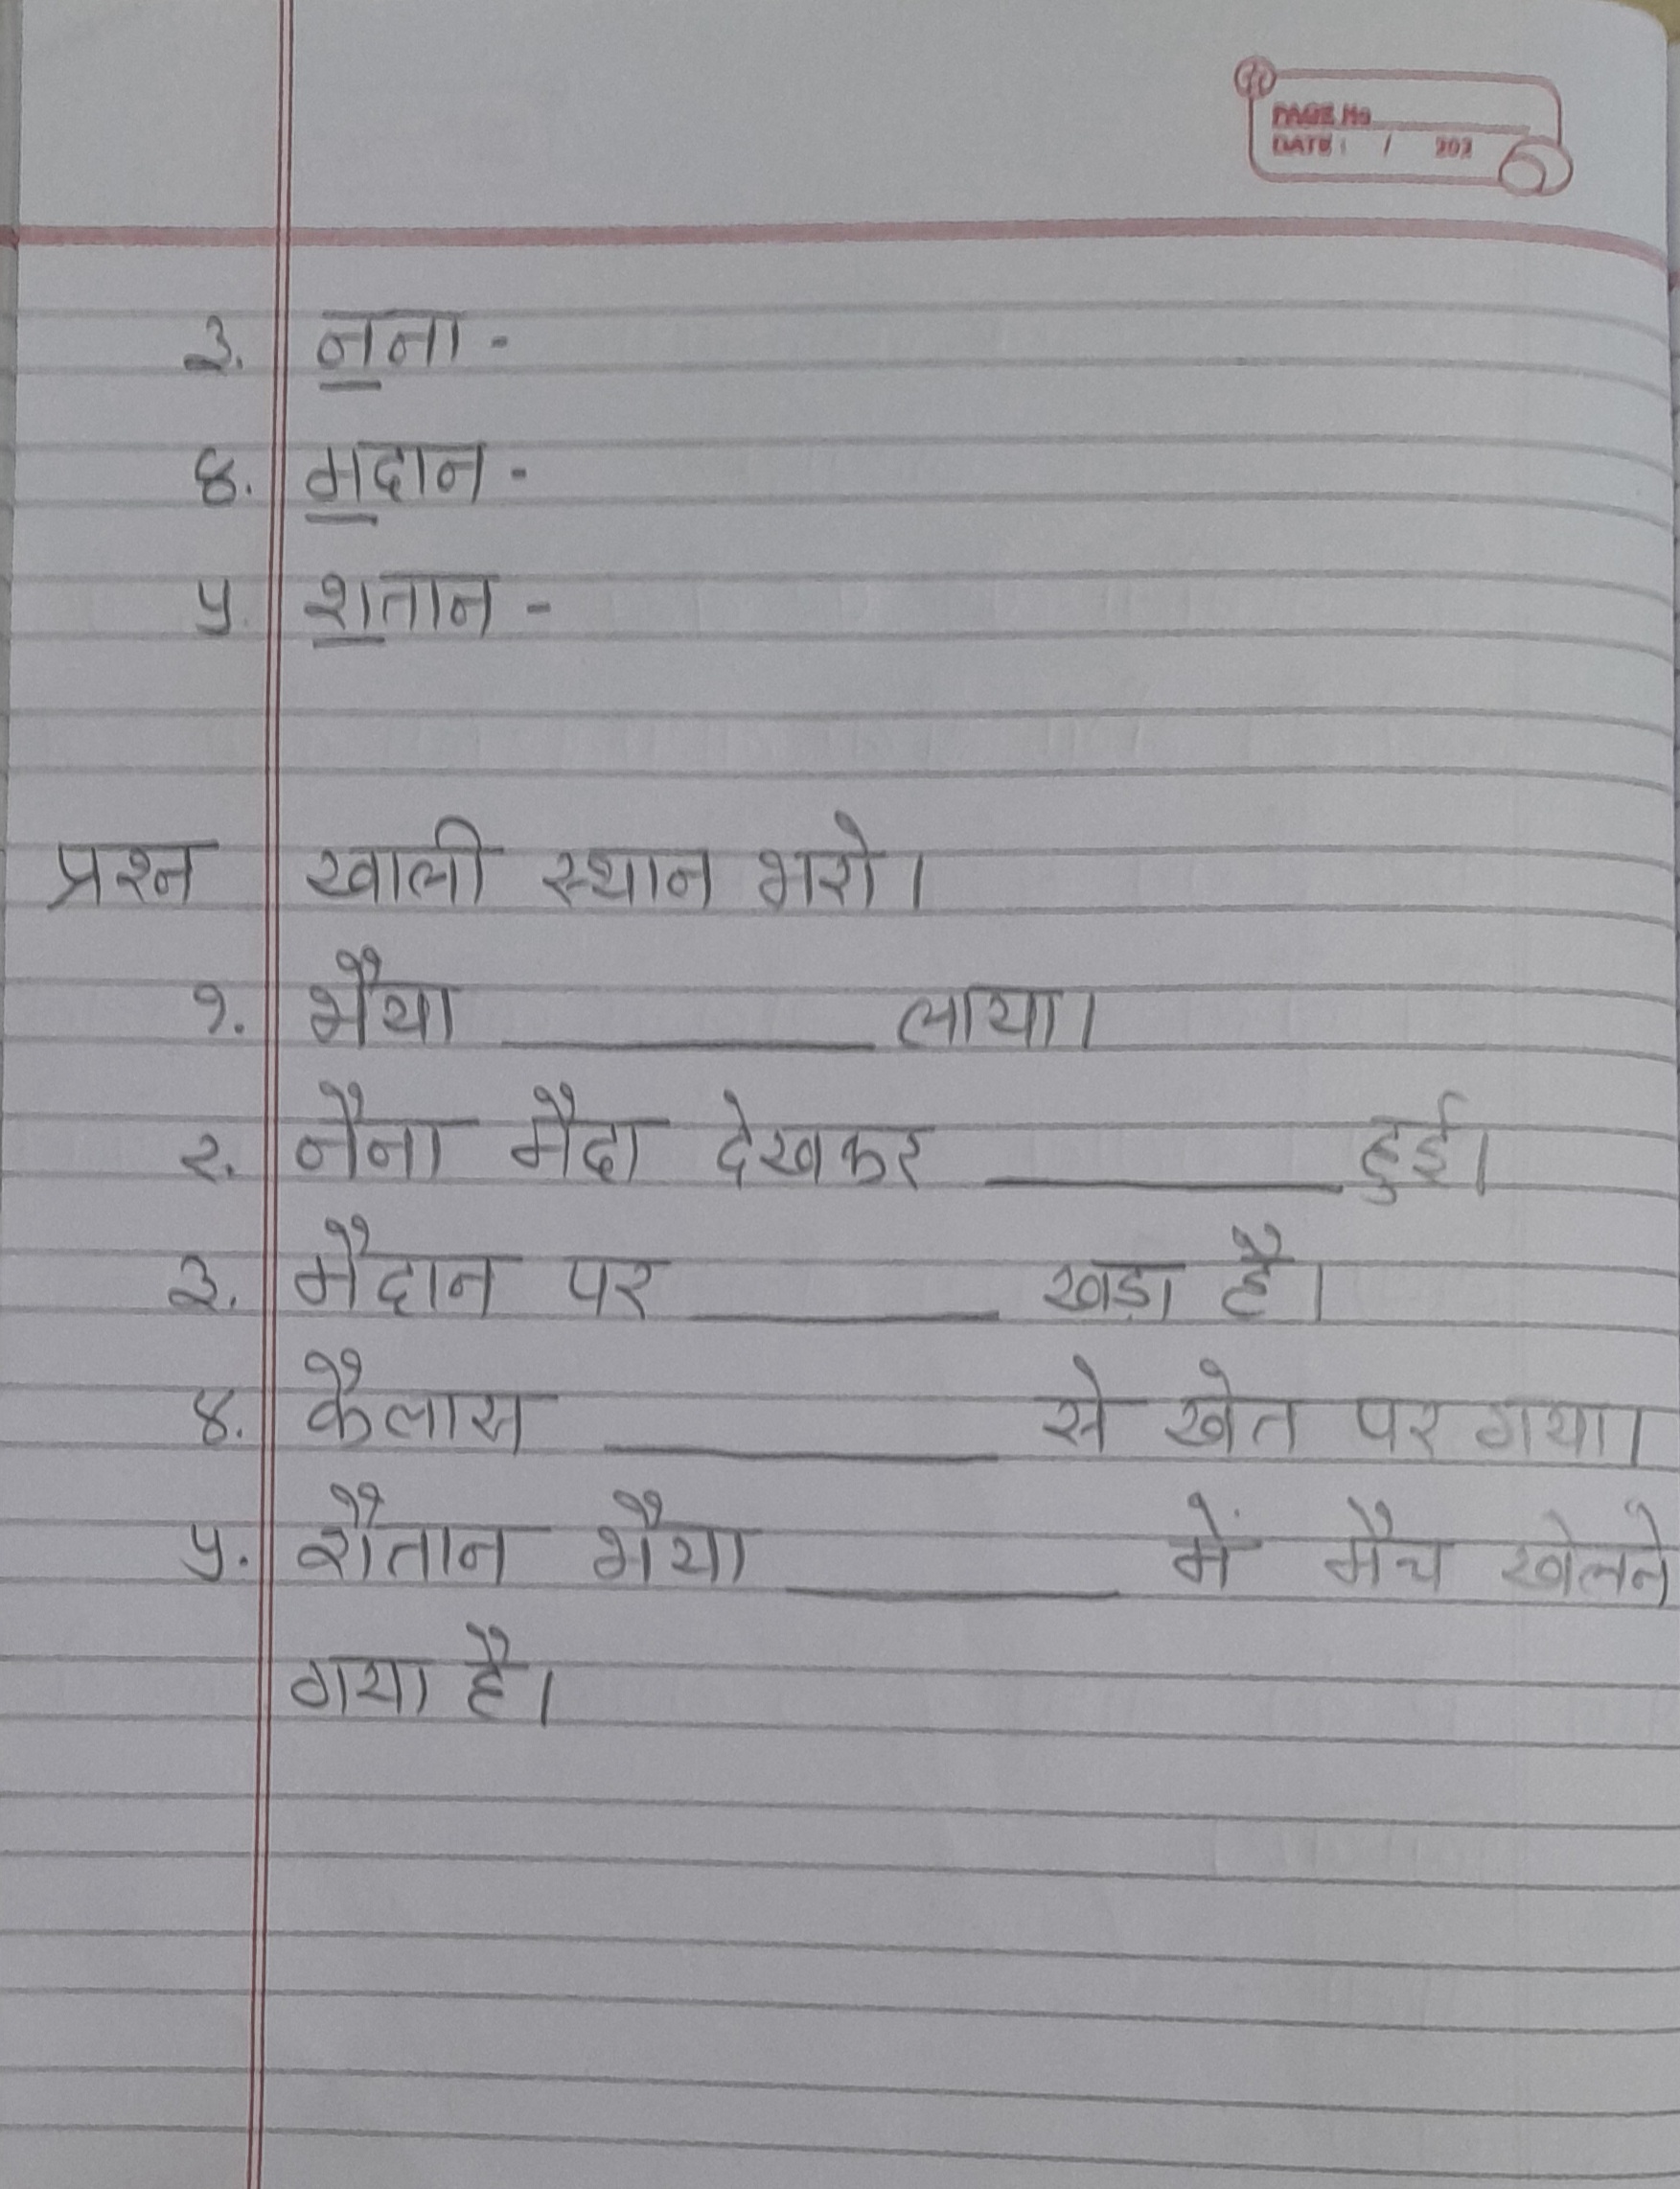 PAGE No
DATE : / 202
३. नना -
४. मदान -
५. शतान -
प्रश्न खाली स्थान भरो।
१. भैया ________ लाया।
२. नैना मैदा देखकर ________ हुई।
३. मैदान पर ________ खड़ा है।
४. कैलास ________ से खेत पर गया।
५. शैतान भैया ________ में मैच खेलने
गया है।